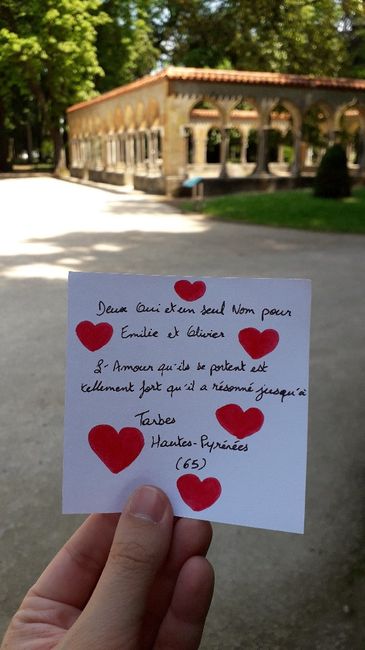 Deux Oui et un seul Nom pour
Emilie et Olivier
L'Amour qu'ils se portent est
tellement fort qu'il a résonné jusqu'à
Tarbes
Hautes-Pyrénées
(65)